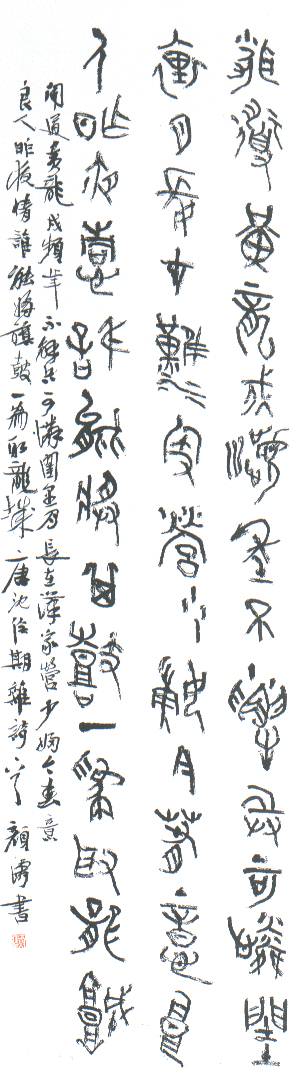 聞道黃龍戍頻年不解兵可憐閨
裏月長在漢家營少婦今春意良
人昨夜情誰能將旗鼓一為取龍城
聞道黃龍戍頻年不解兵可憐閨里月長在漢家營少婦今春意
良人昨夜情誰能將旗鼓一為取龍城 唐沈佺期雜詩 顏書